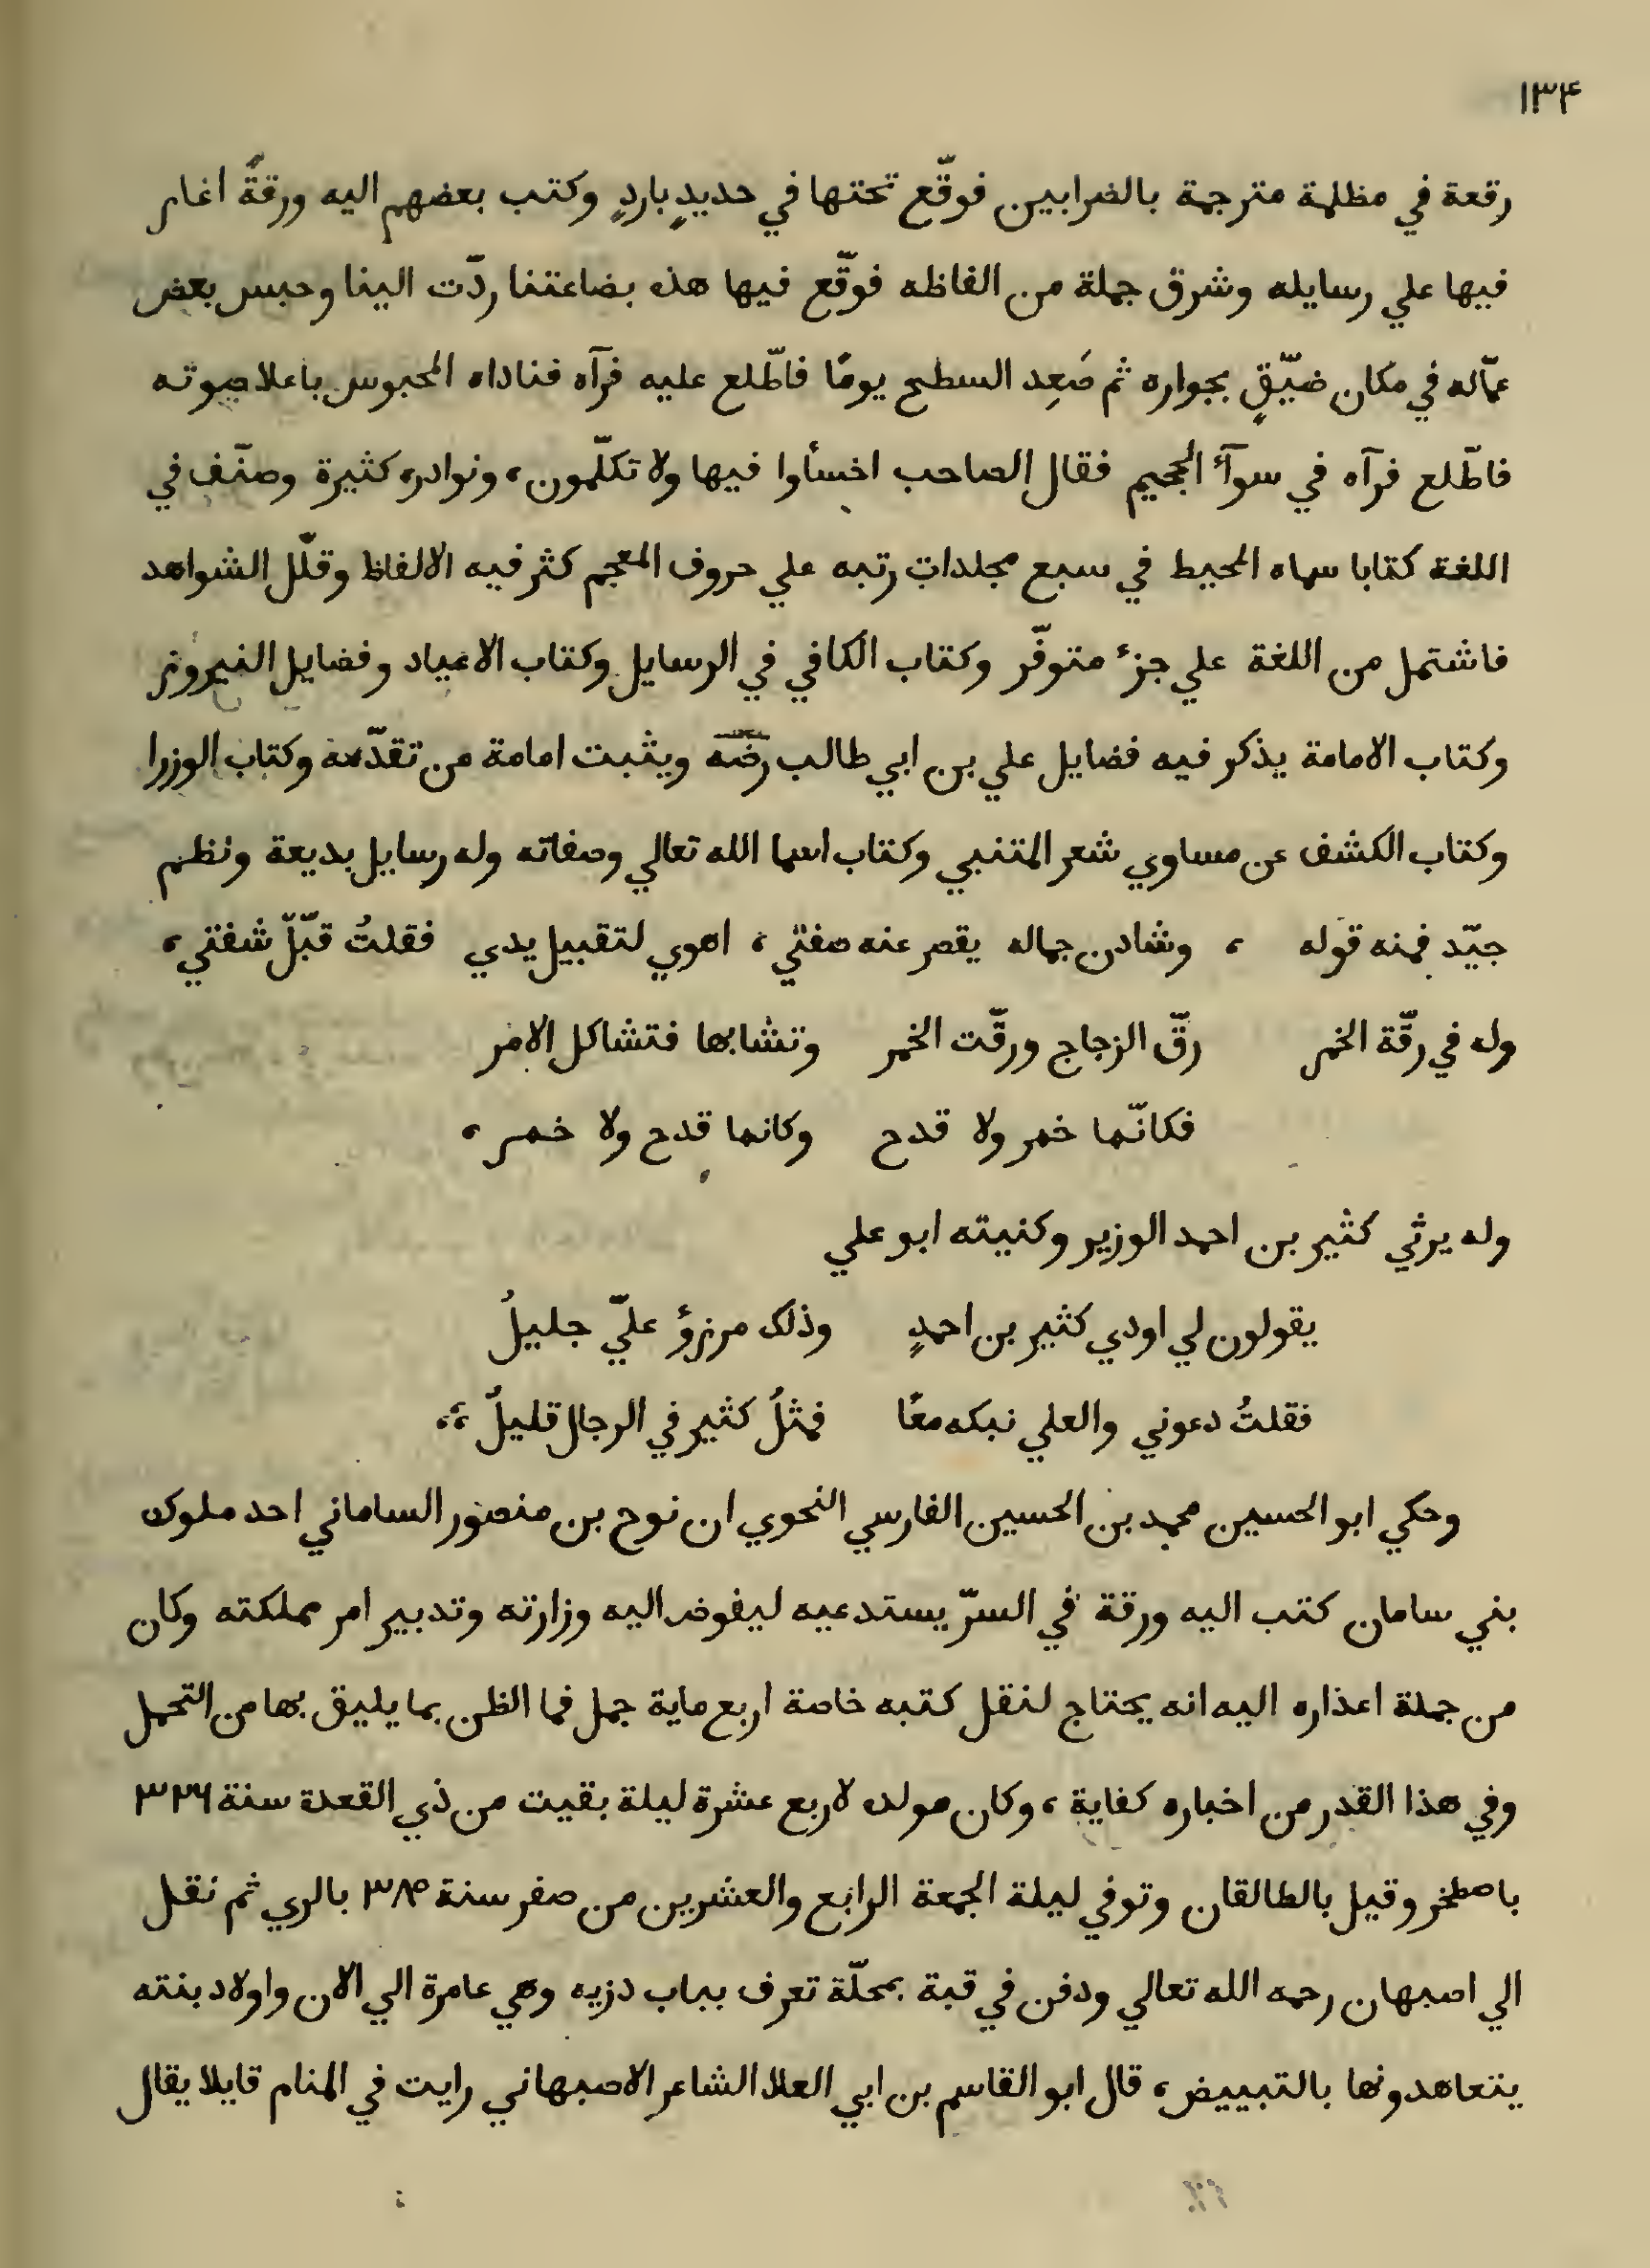 ١٣٤
رقعة في مظلمة مترجمة بالضرابين فوقّع تحتها في حديدٍ باردٍ وكتب بعضهم اليه ورقةً اغار
فيها علي رسايله وشرق جملة من الفاظه فوقّع فيها هذه بضاعتنا ردّت الينا وحبس بعض
عمّاله في مكان ضيّقٍ بجواره ثم صَعِد السطح يومًا فاطّلع عليه فرآه فناداه المحبوس باعلا صوته
فاطّلع فرآه في سوآء الجحيم فقال الصاحب اخسأوا فيها ولا تكلّمون، ونوادره كثيرة وصنّف في
اللغة كتابا سماه المحيط في سبع مجلداتٍ رتبه علي حروف المعجم كثر فيه الالفاظ وقلّل الشواهد
فاشتمل من اللغة علي جزء متوفّر وكتاب الكافي في الرسايل وكتاب الاعياد وفضايل النيروز
وكتاب الامامة يذكر فيه فضايل علي بن ابي طالب رضّه ويثبت امامة من تقدّمه وكتاب الوزرا
وكتاب الكشف عن مساوي شعر المتنبي وكتاب اسما الله تعالي وصفاته وله رسايل بديعة ونظم
جيّد فمنه قوله ، وشادن جماله يقصر عنه صفتي ، اهوي لتقبيل يدي فقلتُ قبّلّ شفتي ،
وله في رقّة الخمر رقّ الزجاج ورقّت الخمر وتشابها فتشاكل الامر
فكانّما خمر ولا قدح وكانما قدح ولا خمر ،
وله يرثي كثير بن احمد الوزير وكنيته ابو علي
يقولون لي اودي كثير بن احمدٍ وذلك مرزؤ عليّ جليلُ
فقلتُ دعوني والعلي نبكه معًا فمثلُ كثير في الرجال قليلُ ،،
وحكي ابو الحسين محمد بن الحسين الفارسي النحوي ان نوح بن منصور الساماني احد ملوك
بني سامان كتب اليه ورقة في السرّ يستدعيه ليفوض اليه وزارته وتدبير امر مملكته وكان
من جملة اعذاره اليه انه يحتاج لنقل كتبه خاصة اربع ماية جمل فما الظن بما يليق بها من التحمل
وفي هذا القدر من اخباره كفاية ، وكان مولده لاربع عشرة ليلة بقيت من ذي القعدة سنة ٣٢٦
باصطخر وقيل بالطالقان وتوفي ليلة الجمعة الرابع والعشرين من صفر سنة ٣٨٥ بالري ثم نقل
الي اصبهان رحمه الله تعالي ودفن في قبة بمحلّة تعرف بباب دزيه وهي عامرة الي الان واولاد بنته
يتعاهدونها بالتبييض ، قال ابو القاسم بن ابي العلا الشاعر الاصبهاني رايت في المنام قايلا يقال